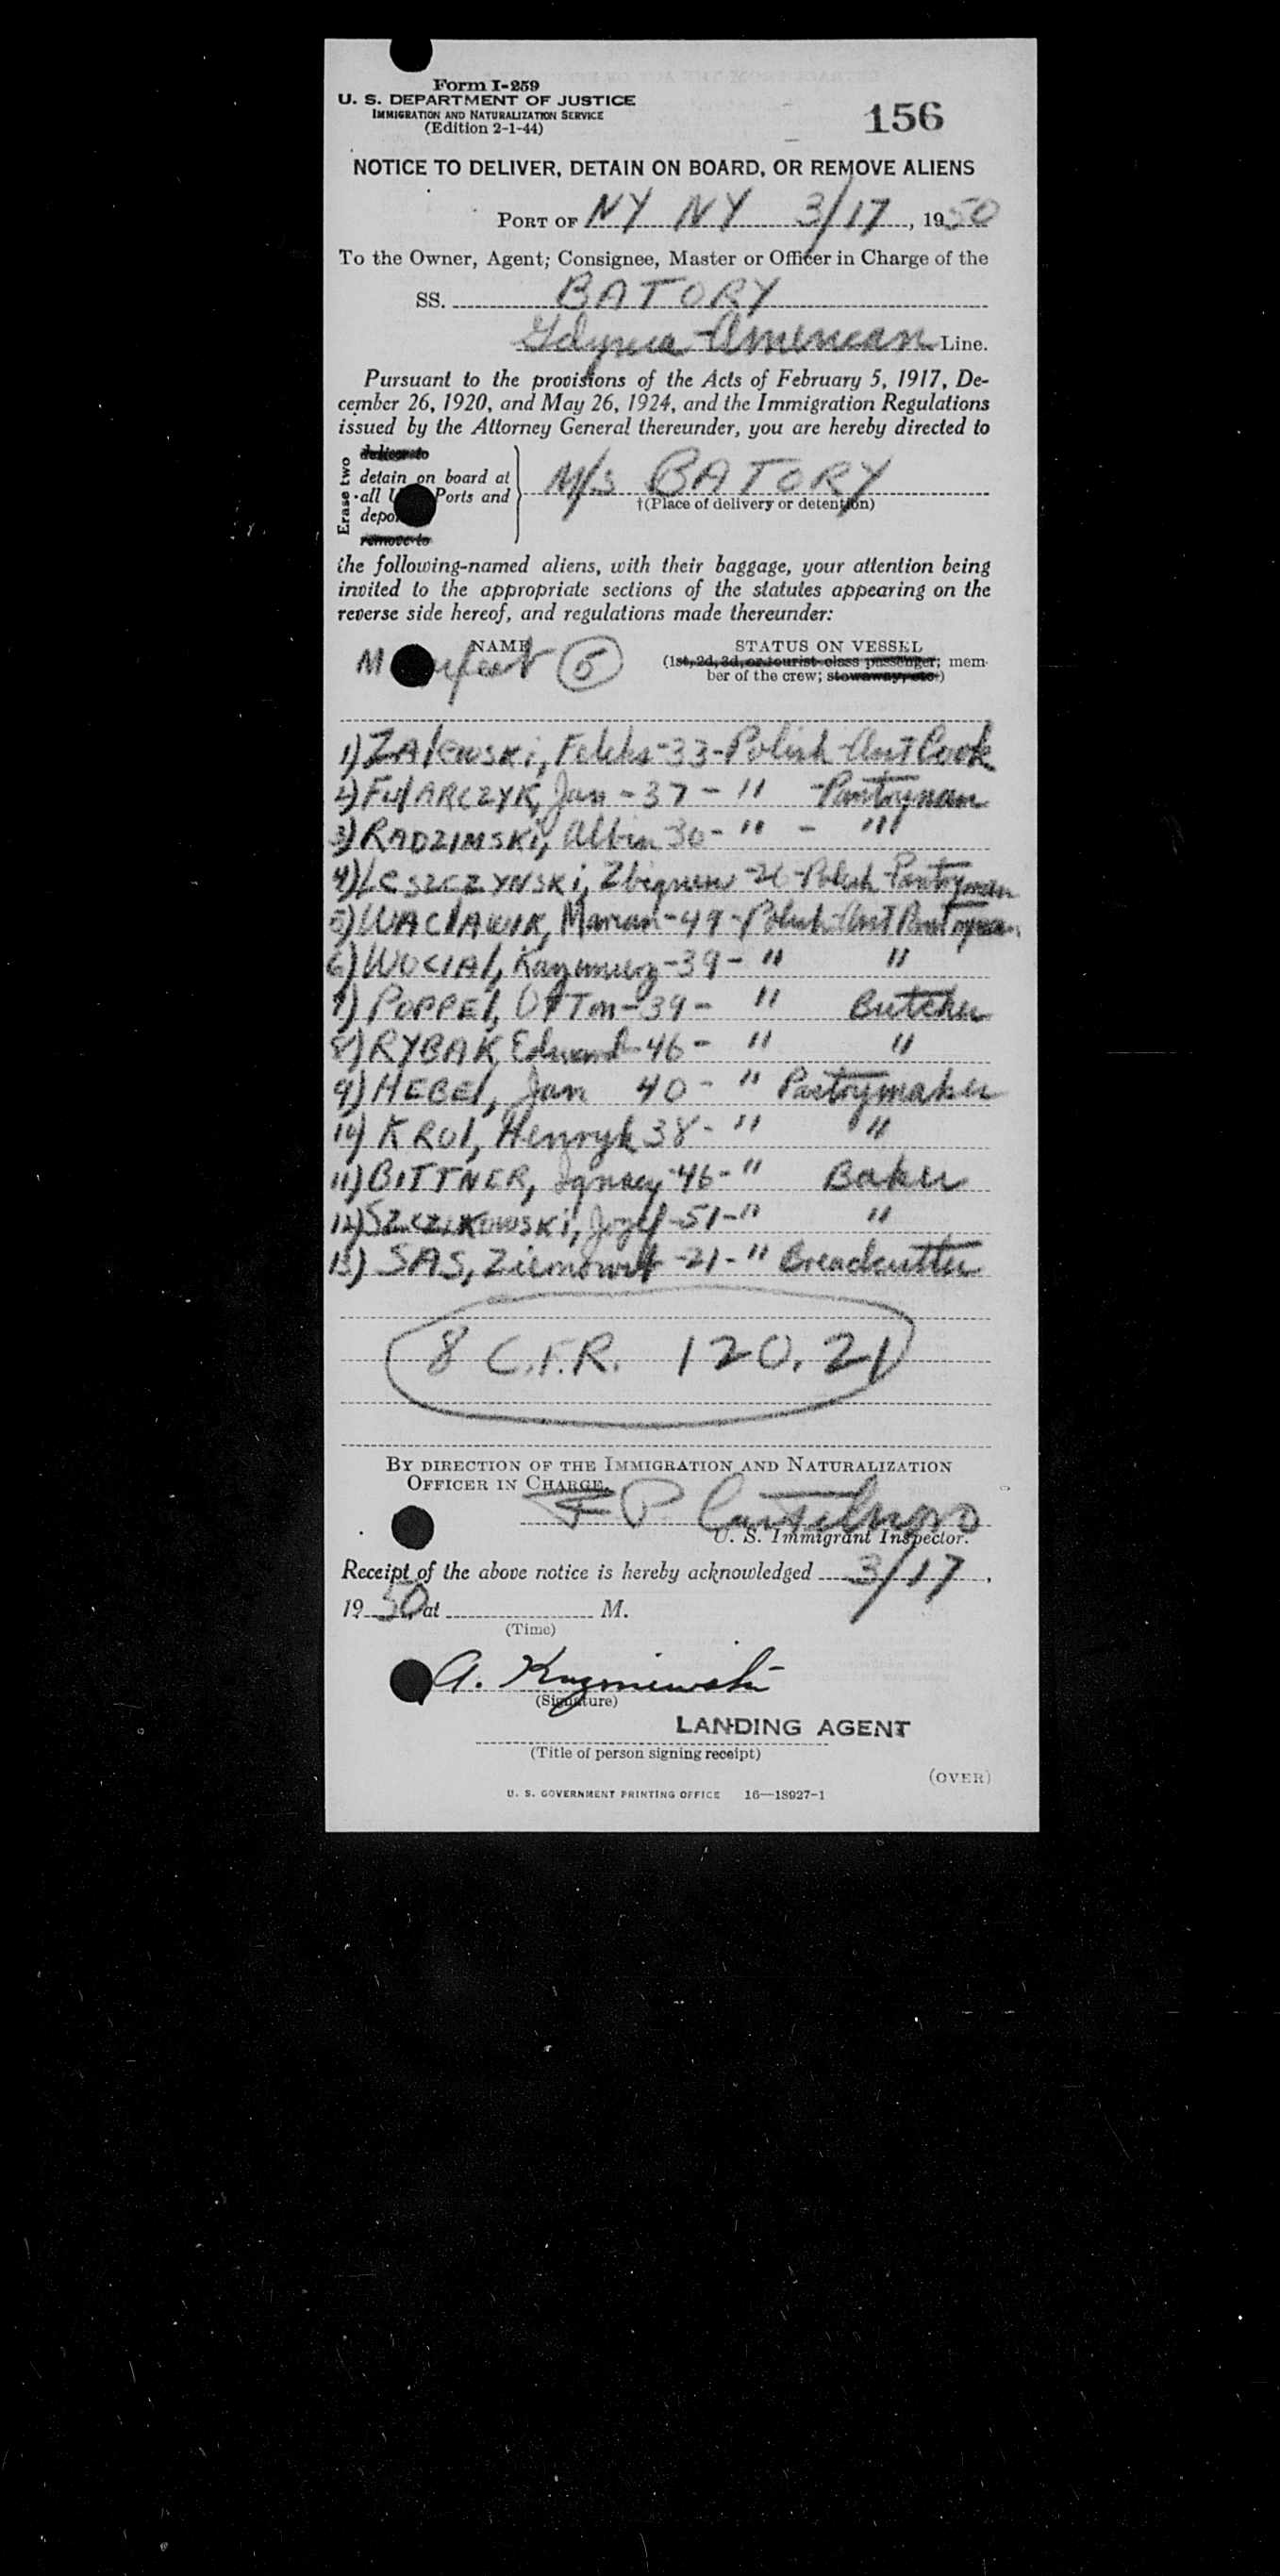 Form I-259
U. S. DEPARTMENT OF JUSTICE
IMMIGRATION AND NATURALIZATION SERVICE
(Edition 2-1-44)
156
NOTICE TO DELIVER, DETAIN ON BOARD, OR REMOVE ALIENS
PORT OF NY NY 3/17, 1950
To the Owner, Agent, Consignee, Master or Officer in Charge of the
SS. BATORY
Gdynia-American Line.
Pursuant to the provisions of the Acts of February 5, 1917, De-
cember 26, 1920, and May 26, 1924, and the Immigration Regulations
issued by the Attorney General thereunder, you are hereby directed to
Erase two
deliver to
detain on board at
all Ports and
remove to
M/S BATORY
†(Place of delivery or detention)
the following-named aliens, with their baggage, your attention being
invited to the appropriate sections of the statutes appearing on the
reverse side hereof, and regulations made thereunder:
NAME STATUS ON VESSEL
(1st, 2d, 3d, or tourist class passenger; mem-
ber of the crew; stowaway, etc.)
5
1) ZAlEWSKi, Feliks-33-Polish-Ass't Cook
2) FIlARCZYK, Jan-37-" -Pantryman
3) RADZIMSKi, Albin 30-" - "
4) LESZCZYNSKi, Zbigniew-26-Polish-Pantryman
5) WAClAWIK, Marian-49-Polish-Ass't Pantryman
6) WOCIAl, Kazimierz-39-" "
7) POPPEl, OTTon-39-" Butcher
8) RYBAK, Edward-46-" "
9) HEBEl, Jan 40-" Pastrymaker
10) KROl, Henryk 38-" "
11) BITTNER, Ignacy-46-" Baker
12) Jozef-51-" "
13) SAS, Ziemowit-21-" Breadcutter
8 C.F.R. 120.21
BY DIRECTION OF THE IMMIGRATION AND NATURALIZATION
OFFICER IN CHARGE.
U. S. Immigrant Inspector.
Receipt of the above notice is hereby acknowledged 3/17,
1950, at M.
(Time)
A. Kuzniewski
(Signature)
LANDING AGENT
(Title of person signing receipt)
(OVER)
U. S. GOVERNMENT PRINTING OFFICE 16—18927-1